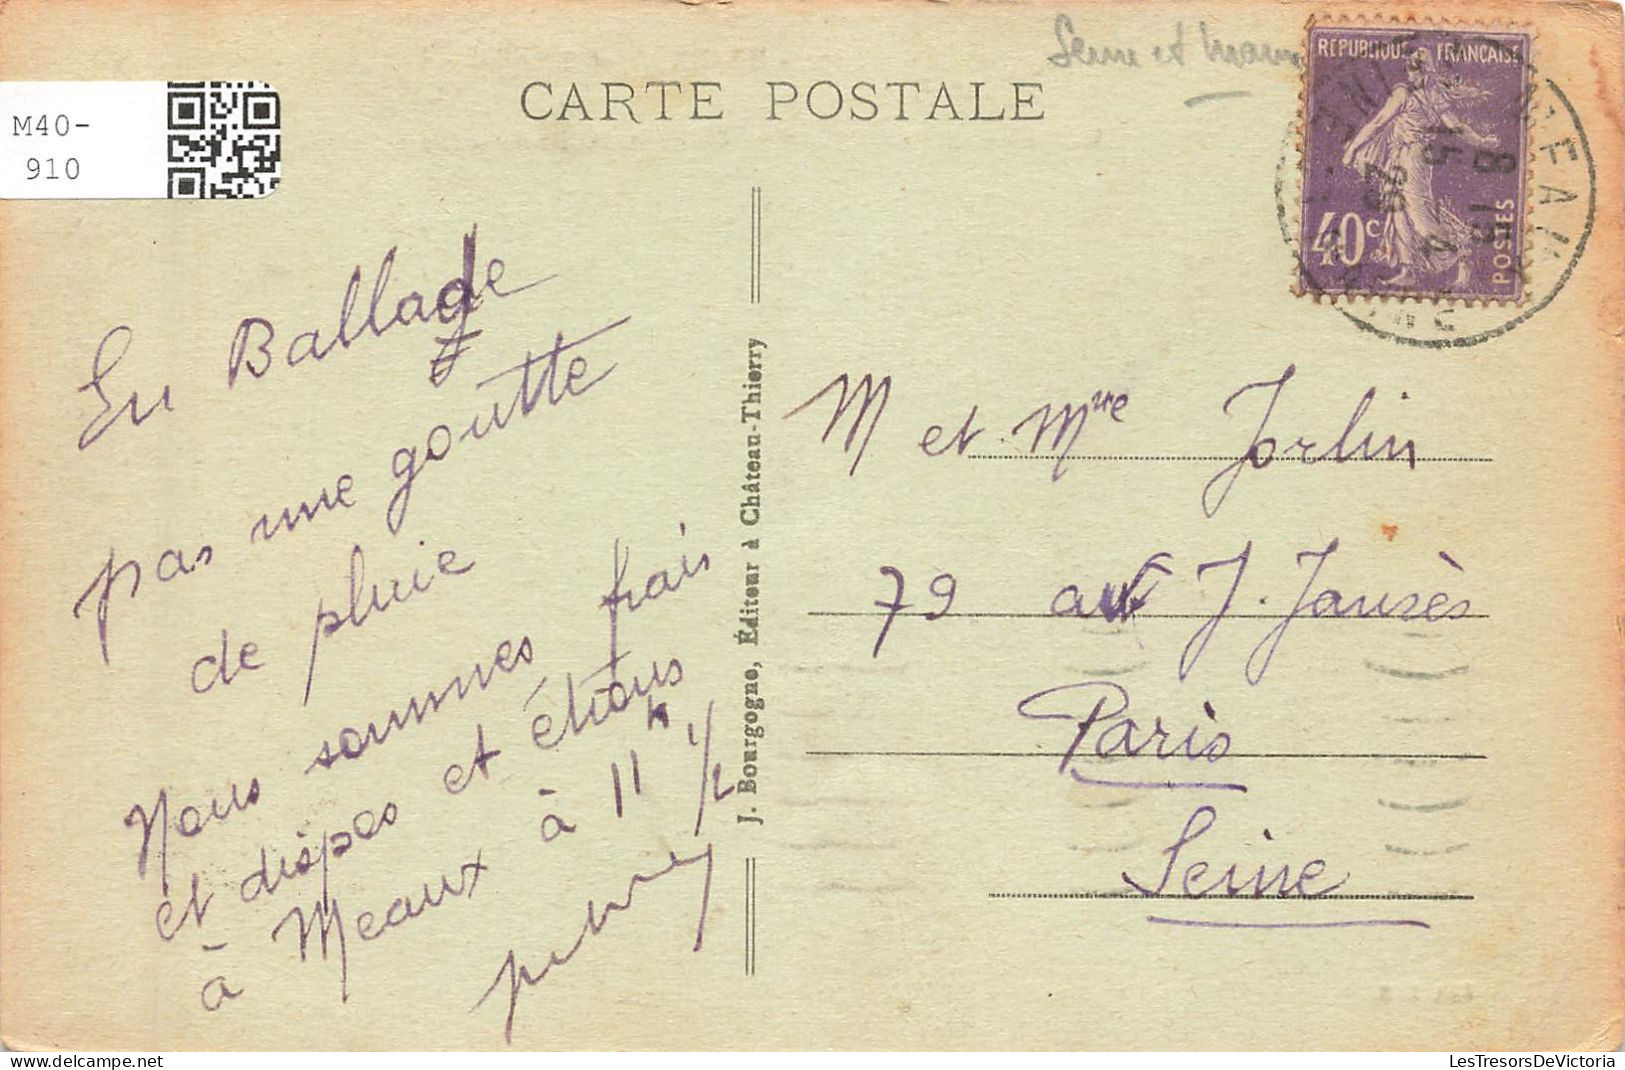 CARTE POSTALE
Seine et
M40-
910
RÉPUBLIQUE FRANÇAISE
40c
POSTES
8 15
15 - 4
26
En Ballade
pas une goutte
de pluie
Nous sommes frais
et dispos et étions
à Meaux à 11h 1/2
J. Bourgogne, Éditeur à Château-Thierry
M et Mme Jorlin
79 av J. Jaurès
Paris
Seine
LesTresorsDeVictoria